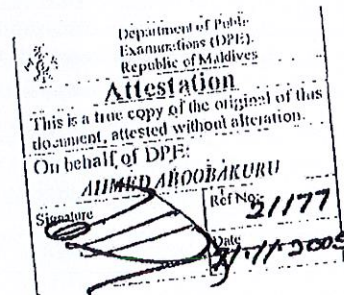 Department of Public
Examinations (DPE).
Republic of Maldives
Attestation
This is a true copy of the original of this
document, attested without alteration.
On behalf of DPE:
AHMED AROOBAKURU
Signature
Ref No: 21177
Date